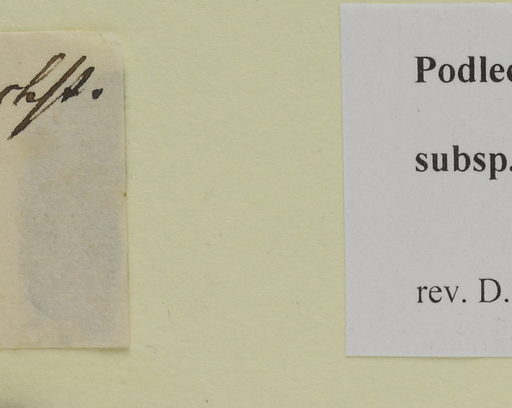 chst.
Podlec
subsp.
rev. D.